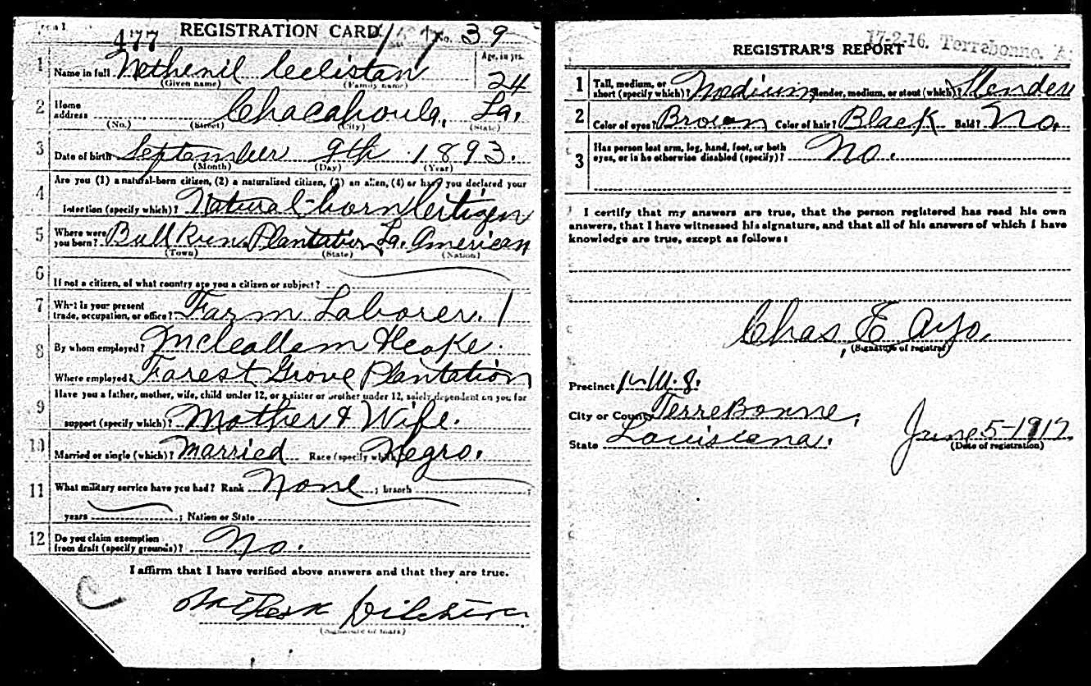 477 REGISTRATION CARD No. 39
1 Name in full Nethenil Age, in yrs.
(Given name) (Family name) 24
2 Home address Chacahoula, La.
(No.) (Street) (City) (State)
3 Date of birth September 9th 1893.
(Month) (Day) (Year)
4 Are you (1) a natural-born citizen, (2) a naturalized citizen, (3) an alien, (4) or have you declared your
intention (specify which)? Natural-born Certigen
5 Where were you born? Bull Run Plantation La. American
(Town) (State) (Nation)
6 If not a citizen, of what country are you a citizen or subject?
7 What is your present trade, occupation, or office? Farm Laborer. 1
8 By whom employed?
Where employed? Farest Grove Plantation
9 Have you a father, mother, wife, child under 12, or a sister or brother under 12, solely dependent on you for
support (specify which)? Mother & Wife.
10 Married or single (which)? Married Race (specify which)? Negro.
11 What military service have you had? Rank None ; branch ;
years ; Nation or State
12 Do you claim exemption from draft (specify grounds)? No.
I affirm that I have verified above answers and that they are true.
(Signature or mark)
REGISTRAR'S REPORT 17-2-16. Terrebonne,
1 Tall, medium, or short (specify which)? Medium Slender, medium, or stout (which)? Slender
2 Color of eyes? Brown Color of hair? Black Bald? No.
3 Has person lost arm, leg, hand, foot, or both eyes, or is he otherwise disabled (specify)? No.
I certify that my answers are true, that the person registered has read his own
answers, that I have witnessed his signature, and that all of his answers of which I have
knowledge are true, except as follows:
Chas E Ayo.
(Signature of registrar)
Precinct
City or County TerreBonne,
State Louisiena. June 5-1917
(Date of registration)